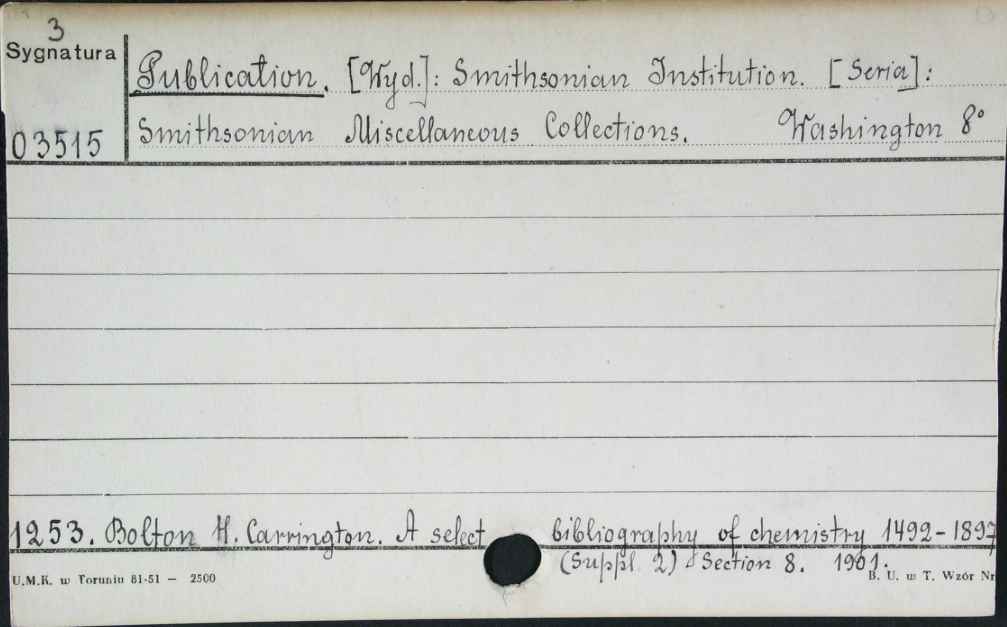 3
Sygnatura
Publication. [Wyd.]: Smithsonian Institution. [Seria]:
03515
Smithsonian Miscellaneous Collections. Washington 8°
1253. Bolton H. Carrington. A select bibliography of chemistry 1492-1897
(Suppl. 2) Section 8. 1901.
U.M.K. w Toruniu 81-51 — 2500
B. U. w T. Wzór Nr